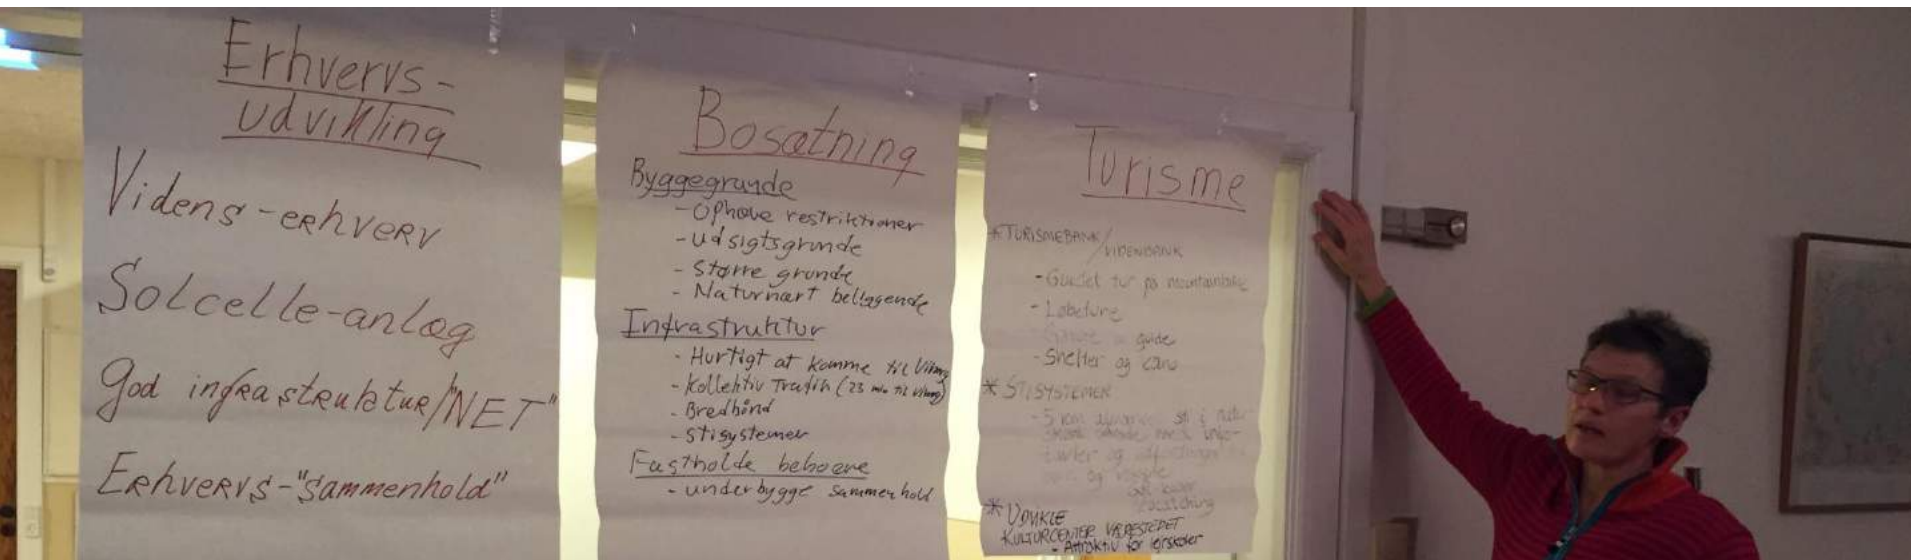 Erhvervs-
udvikling
Videns-erhverv
Solcelle-anlæg
God infrastruktur/"NET"
Erhvervs-"sammenhold"
Bosætning
Byggegrunde
- Ophæve restriktioner
- Udsigtsgrunde
- Større grunde
- Naturnært beliggende
Infrastruktur
- Hurtigt at komme til Viborg
- Kollektiv Trafik (23 min til Viborg)
- Bredbånd
- Stisystemer
Fastholde beboere
- underbygge sammenhold
Turisme
* TURISMEBANK/
VIDENBANK
- Guidet tur på mountainbike
- Løbeture
guide
- Shelter og
* STISYSTEMER
- 5 km sti i
og
* UDVIKLE
KULTURCENTER VÆRESTEDET
- Attraktiv for lejrskoler